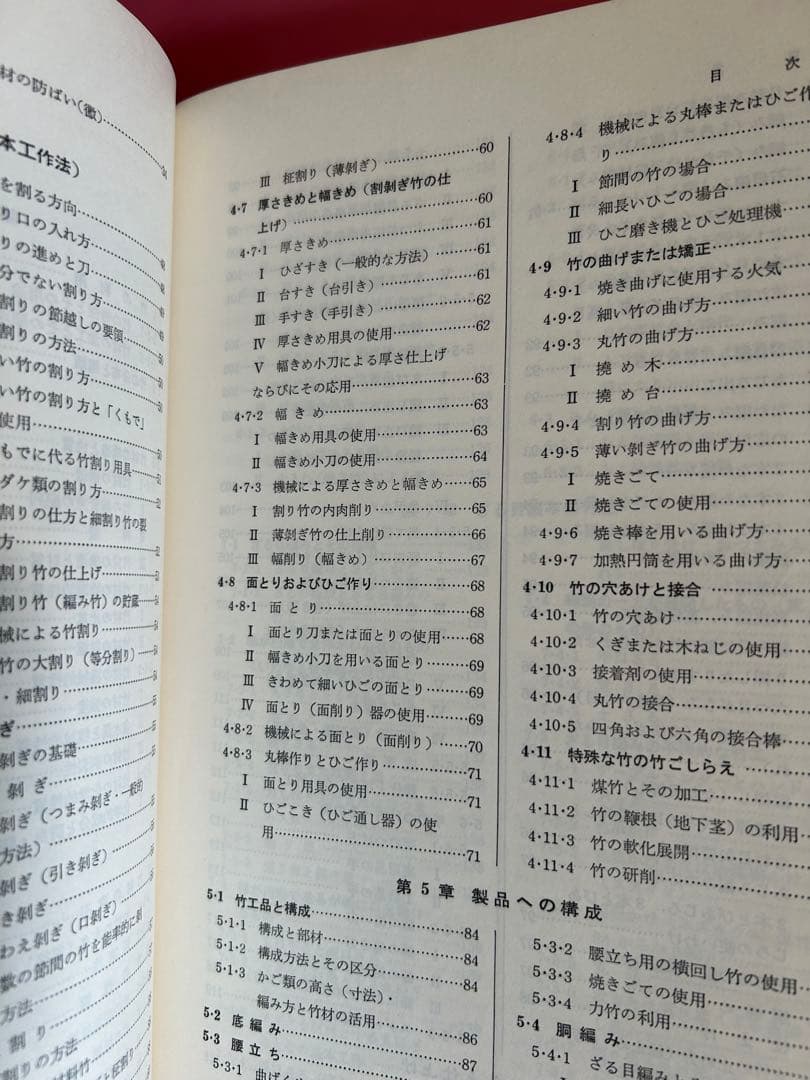 材の防ばい(黴)
本工作法)
を割る方向
り口の入れ方
りの進めと刀
分でない割り方
割りの節越しの要領
割りの方法
い竹の割り方
い竹の割り方と「くもで」
使用
もでに代る竹割り用具
ダケ類の割り方
割りの仕方と細割り竹の製
方
割り竹の仕上げ
割り竹(編み竹)の貯蔵
械による竹割り
竹の大割り(等分割り)
・細割り
ぎ
剝ぎの基礎
剝ぎ
剝ぎ(つまみ剝ぎ・一般的
方法)
剝ぎ(引き剝ぎ)
き剝ぎ
わえ剝ぎ(口剝ぎ)
数の節間の竹を能率的に剝
方法
割り
割りの方法
目次
Ⅲ 柾割り(薄剝ぎ)……60
4・7 厚さきめと幅きめ(割剝ぎ竹の仕
上げ)……60
4・7・1 厚さきめ……61
Ⅰ ひざすき(一般的な方法)……61
Ⅱ 台すき(台引き)……61
Ⅲ 手すき(手引き)……62
Ⅳ 厚さきめ用具の使用……62
Ⅴ 幅きめ小刀による厚さ仕上げ
ならびにその応用……63
4・7・2 幅きめ……63
Ⅰ 幅きめ用具の使用……63
Ⅱ 幅きめ小刀の使用……64
4・7・3 機械による厚さきめと幅きめ……65
Ⅰ 割り竹の内肉削り……65
Ⅱ 薄剝ぎ竹の仕上削り……66
Ⅲ 幅削り(幅きめ)……67
4・8 面とりおよびひご作り……68
4・8・1 面とり……68
Ⅰ 面とり刀または面とりの使用……68
Ⅱ 幅きめ小刀を用いる面とり……69
Ⅲ きわめて細いひごの面とり……69
Ⅳ 面とり(面削り)器の使用……69
4・8・2 機械による面とり(面削り)……70
4・8・3 丸棒作りとひご作り……71
Ⅰ 面とり用具の使用……71
Ⅱ ひごこき(ひご通し器)の使
用……71
4・8・4 機械による丸棒またはひご作
り……
Ⅰ 節間の竹の場合……
Ⅱ 細長いひごの場合……
Ⅲ ひご磨き機とひご処理機……
4・9 竹の曲げまたは矯正……
4・9・1 焼き曲げに使用する火気……
4・9・2 細い竹の曲げ方……
4・9・3 丸竹の曲げ方……
Ⅰ 撓め木……
Ⅱ 撓め台……
4・9・4 割り竹の曲げ方……
4・9・5 薄い剝ぎ竹の曲げ方……
Ⅰ 焼きごて……
Ⅱ 焼きごての使用……
4・9・6 焼き棒を用いる曲げ方……
4・9・7 加熱円筒を用いる曲げ方……
4・10 竹の穴あけと接合……
4・10・1 竹の穴あけ……
4・10・2 くぎまたは木ねじの使用……
4・10・3 接着剤の使用……
4・10・4 丸竹の接合……
4・10・5 四角および六角の接合棒……
4・11 特殊な竹の竹ごしらえ……
4・11・1 煤竹とその加工……
4・11・2 竹の鞭根(地下茎)の利用……
4・11・3 竹の軟化展開……
4・11・4 竹の研削……
第5章 製品への構成
5・1 竹工品と構成……84
5・1・1 構成と部材……84
5・1・2 構成方法とその区分……84
5・1・3 かご類の高さ(寸法)・
編み方と竹材の活用……86
5・2 底編み……86
5・3 腰立ち……87
5・3・1
5・3・2 腰立ち用の横回し竹の使用……
5・3・3 焼きごての使用……
5・3・4 力竹の利用……
5・4 胴編み……
5・4・1 ざる目編みと